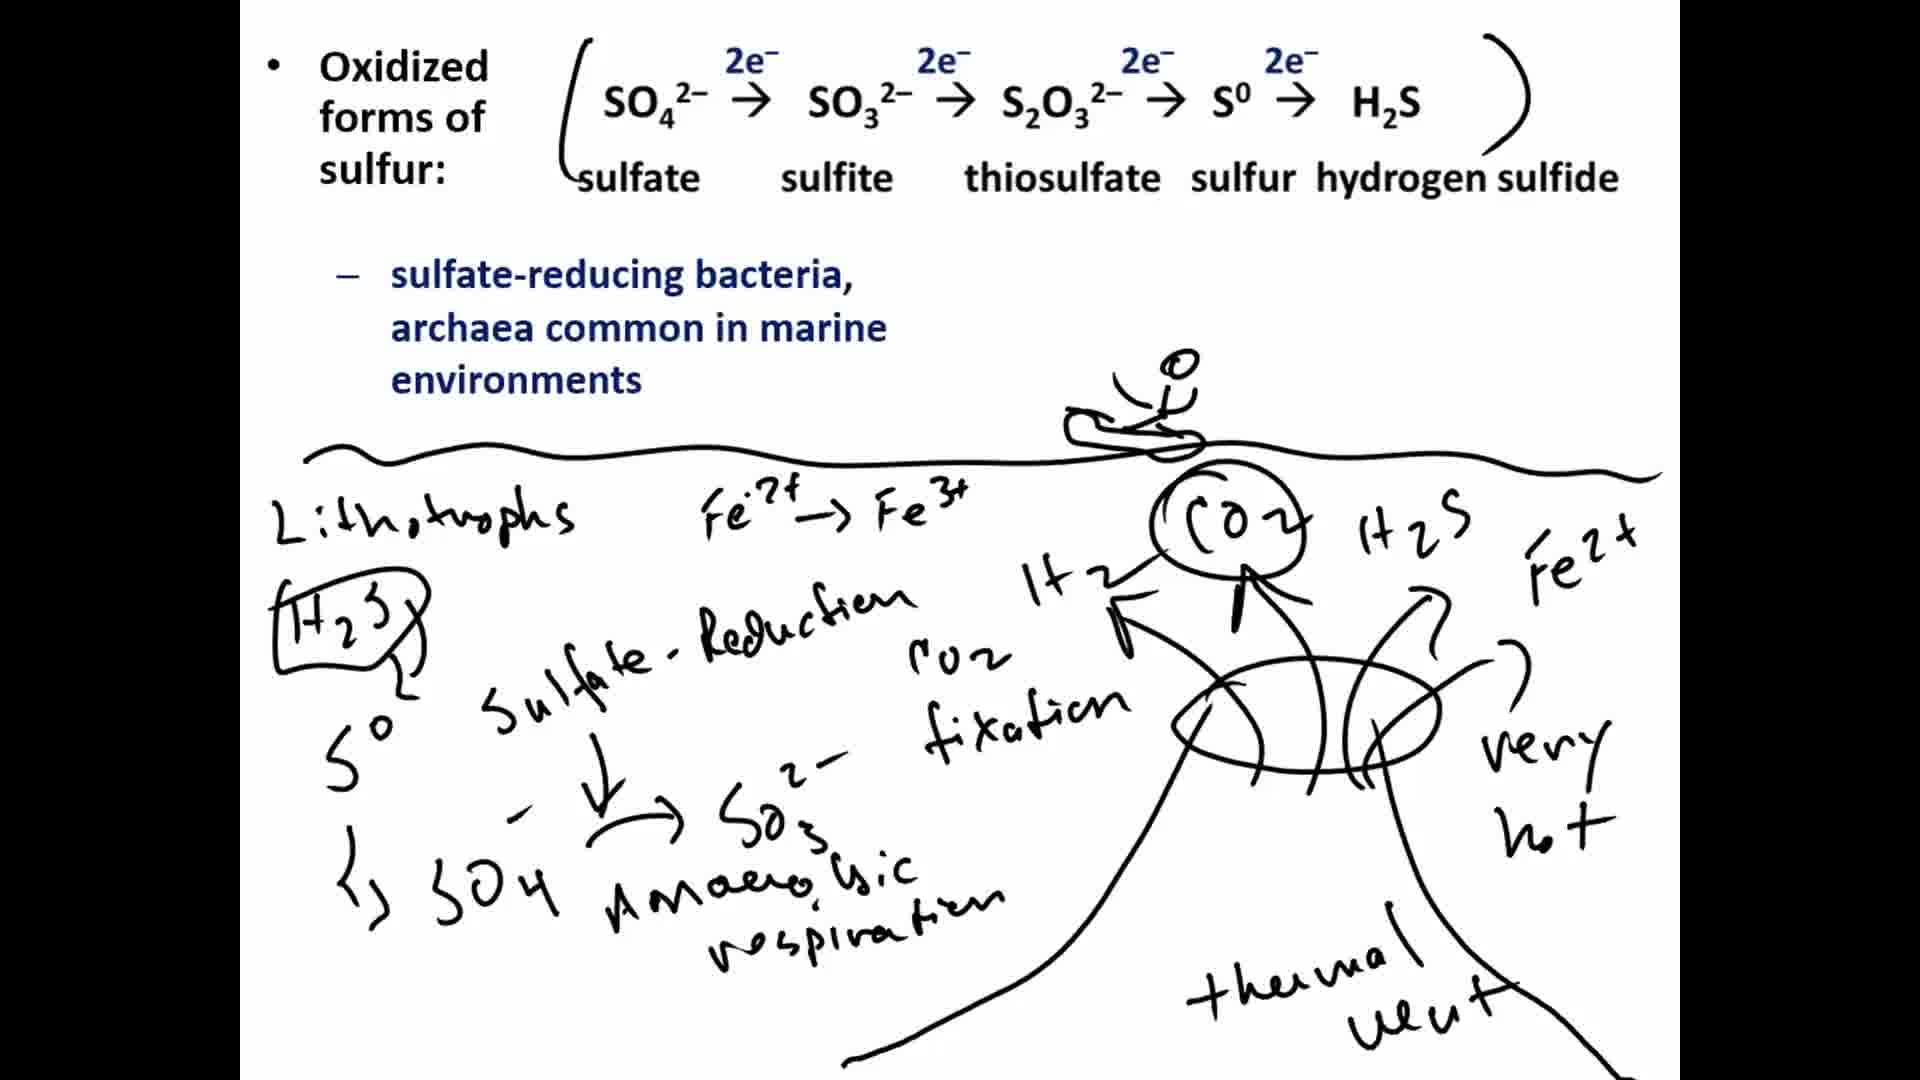 • Oxidized forms of sulfur:
2e⁻ 2e⁻ 2e⁻ 2e⁻
SO₄²⁻ → SO₃²⁻ → S₂O₃²⁻ → S⁰ → H₂S
sulfate sulfite thiosulfate sulfur hydrogen sulfide
– sulfate-reducing bacteria,
archaea common in marine
environments
Lithotrophs
Fe²⁺ → Fe³⁺
CO₂
H₂S
Fe²⁺
H₂
H₂S
Sulfate-Reduction
CO₂
fixation
S⁰
SO₄⁻ → SO₃²⁻
Anaerobic
respiration
very
hot
thermal
vent